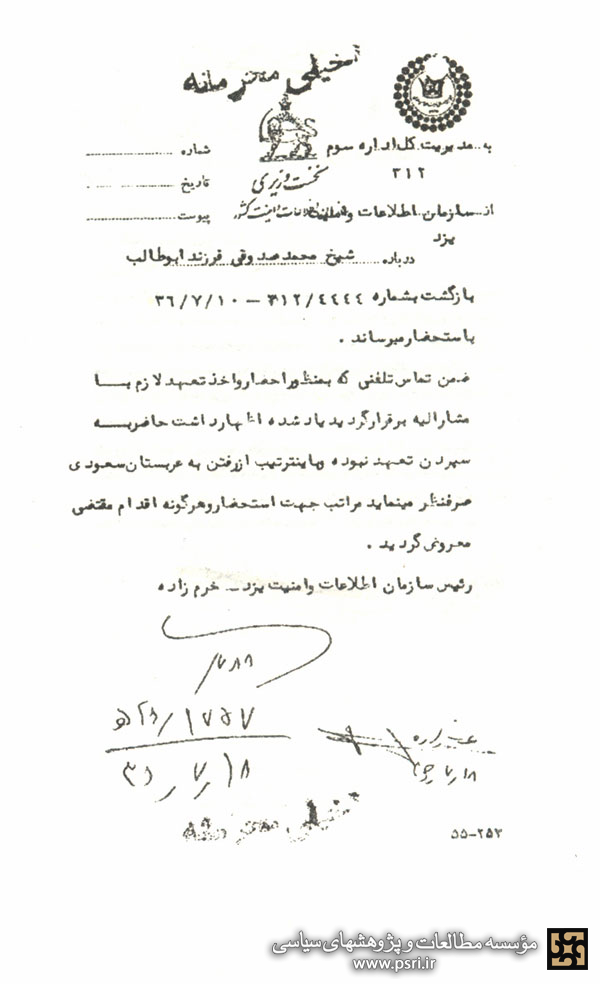 خیلی محرمانه
به مدیریت کل اداره سوم
۳۱۲
شماره
نخست وزیری
تاریخ
سازمان اطلاعات و امنیت کشور
پیوست
از سازمان اطلاعات و امنیت
یزد
درباره شیخ محمد صدوقی فرزند ابوطالب
بازگشت بشماره ۳۱۲/٤٤٤٤ – ۳۶/۷/۱۰
باستحضار میرساند .
ضمن تماس تلفنی که بمنظور احضار و اخذ تعهد لازم با
مشارالیه برقرار گردید یاد شده اظهار داشت حاضر به
سپردن تعهد نبوده و باینترتیب از رفتن به عربستان سعودی
صرفنظر مینماید مراتب جهت استحضار و هرگونه اقدام مقتضی
معروض گردید .
رئیس سازمان اطلاعات و امنیت یزد – خرم زاده
خیلی محرمانه
۵۵-۲۵۳
مؤسسه مطالعات و پژوهشهای سیاسی
www.psri.ir